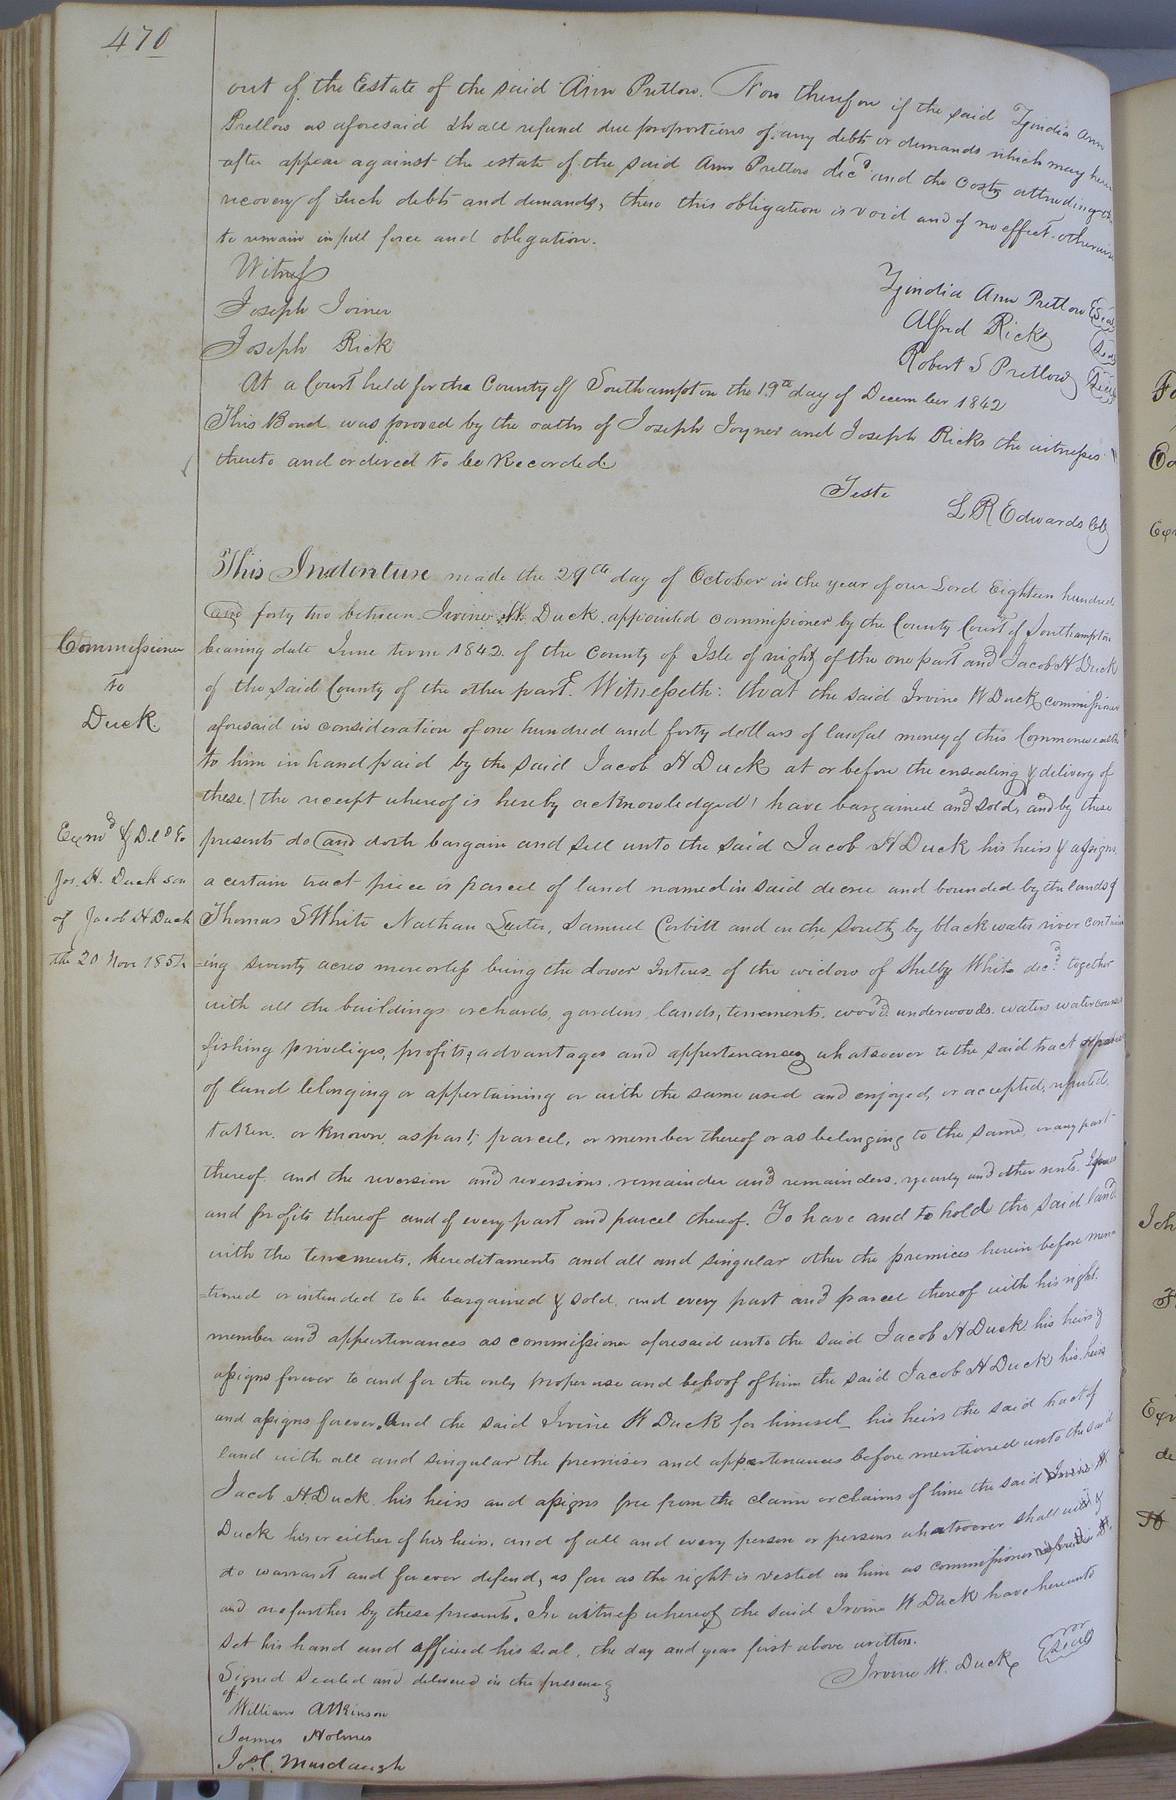 470
out of the Estate of the said Ann Pretlow. Now therefore if the said Zjindia Ann
Pretlow as aforesaid shall refund due proportions of any debts or demands which may here
after appear against the estate of the said Ann Pretlow decd and the costs attending the
recovery of such debts and demands, then this obligation is void and of no effect otherwise
to remain in full force and obligation.
Witness
Zjindia Ann Pretlow Seal
Joseph Joiner
Alfred Ricks Seal
Joseph Rick
Robert S Pretlow Seal
At a Court held for the County of Southampton the 19th day of December 1842
This Bond was proved by the oaths of Joseph Joyner and Joseph Ricks the witnesses
thereto and ordered to be Recorded
Teste
L R Edwards Clk
This Indenture made the 29th day of October in the year of our Lord Eighteen hundred
and forty two between Irvine W. Duck appointed commissioner by the County Court of Southampton
bearing date June term 1842 of the County of Isle of wight of the one part and Jacob H Duck
of the said County of the other part. Witnesseth: that the said Irvine W Duck commissioner
aforesaid in consideration of one hundred and forty dollars of lawful money of this Commonwealth
to him in hand paid by the said Jacob H Duck at or before the ensealing & delivery of
these (the receipt whereof is hereby acknowledged) have bargained and sold, and by these
presents do and doth bargain and sell unto the said Jacob H Duck his heirs & assigns
a certain tract piece is parcel of land named in said decree and bounded by the lands of
Thomas S White Nathan Suiter, Samuel Corbitt and on the South by blackwater river contain
=ing seventy acres more or less being the dower Interes of the widow of Shelby White decd. together
with all the buildings orchards, gardens, lands, tenements, woods underwoods, waters watercourses
fishing priviliges, profits, advantages and appertenances whatsoever to the said tract
of land belonging or appertaining or with the same used and enjoyed, or accepted, reputed,
taken, or known, as part, parcel, or member thereof or as belonging to the same, or any part
thereof and the reversion and reversions, remainder and remainders, yearly and other rents. Issues
and profits thereof and of every part and parcel thereof. To have and to hold the said land
with the tenements, hereditaments and all and singular other the premices herein before men
=tioned or intended to be bargained & sold, and every part and parcel thereof with his right.
member and appurtenances as commissioner aforesaid unto the said Jacob H Duck his heirs &
assigns forever to and for the only proper use and behoof of him the said Jacob H Duck his heirs
and assigns forever, And the said Irvine W Duck for himsel his heirs the said tract of
land with all and singular the premises and appertenances before mentioned unto the said
Jacob H. Duck his heirs and assigns free from the claim or claims of him the said Irvine W
Duck his or either of his heirs, and of all and every person or persons whatsoever shall will &
do warrant and forever defend, as far as the right is vested in him as commissioner
and no further by these presents. In witness whereof the said Irvine W Duck have hereunto
set his hand and affixed his seal, the day and year first above written.
Signed Sealed and delivered in the presence
of
Irvine W. Duck Seal
William Atkinson
James Holmes
Jo. C. Murdaugh
Commissioner
to
Duck
Exmd & Deld to
Jos. H. Duck son
of Jacob H Duck
the 20 Nov 185